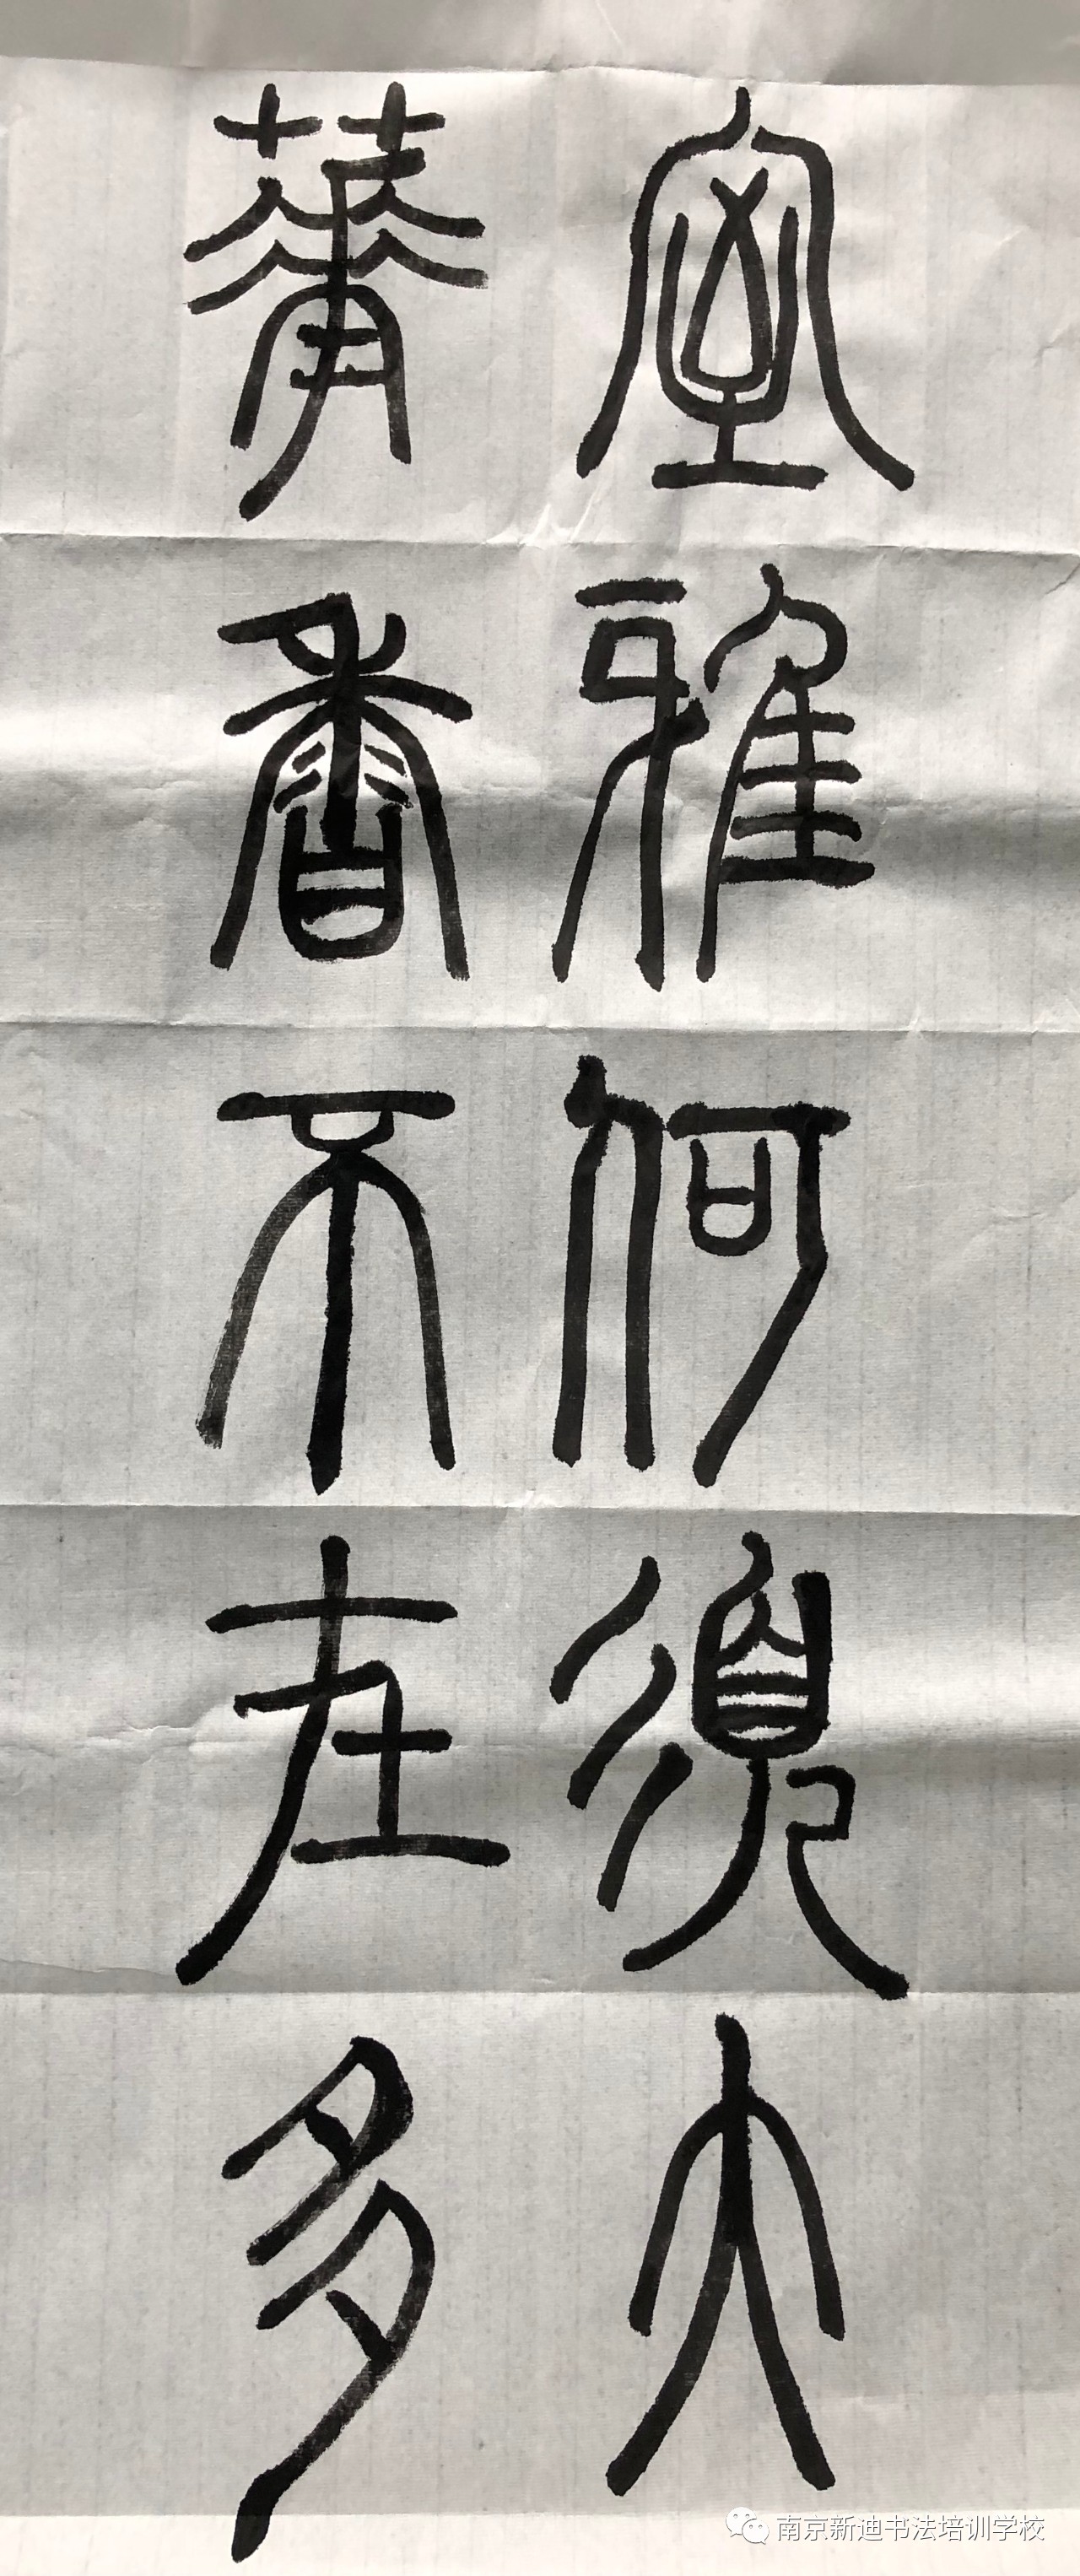 室雅何須大
華香不在多
南京新迪书法培训学校